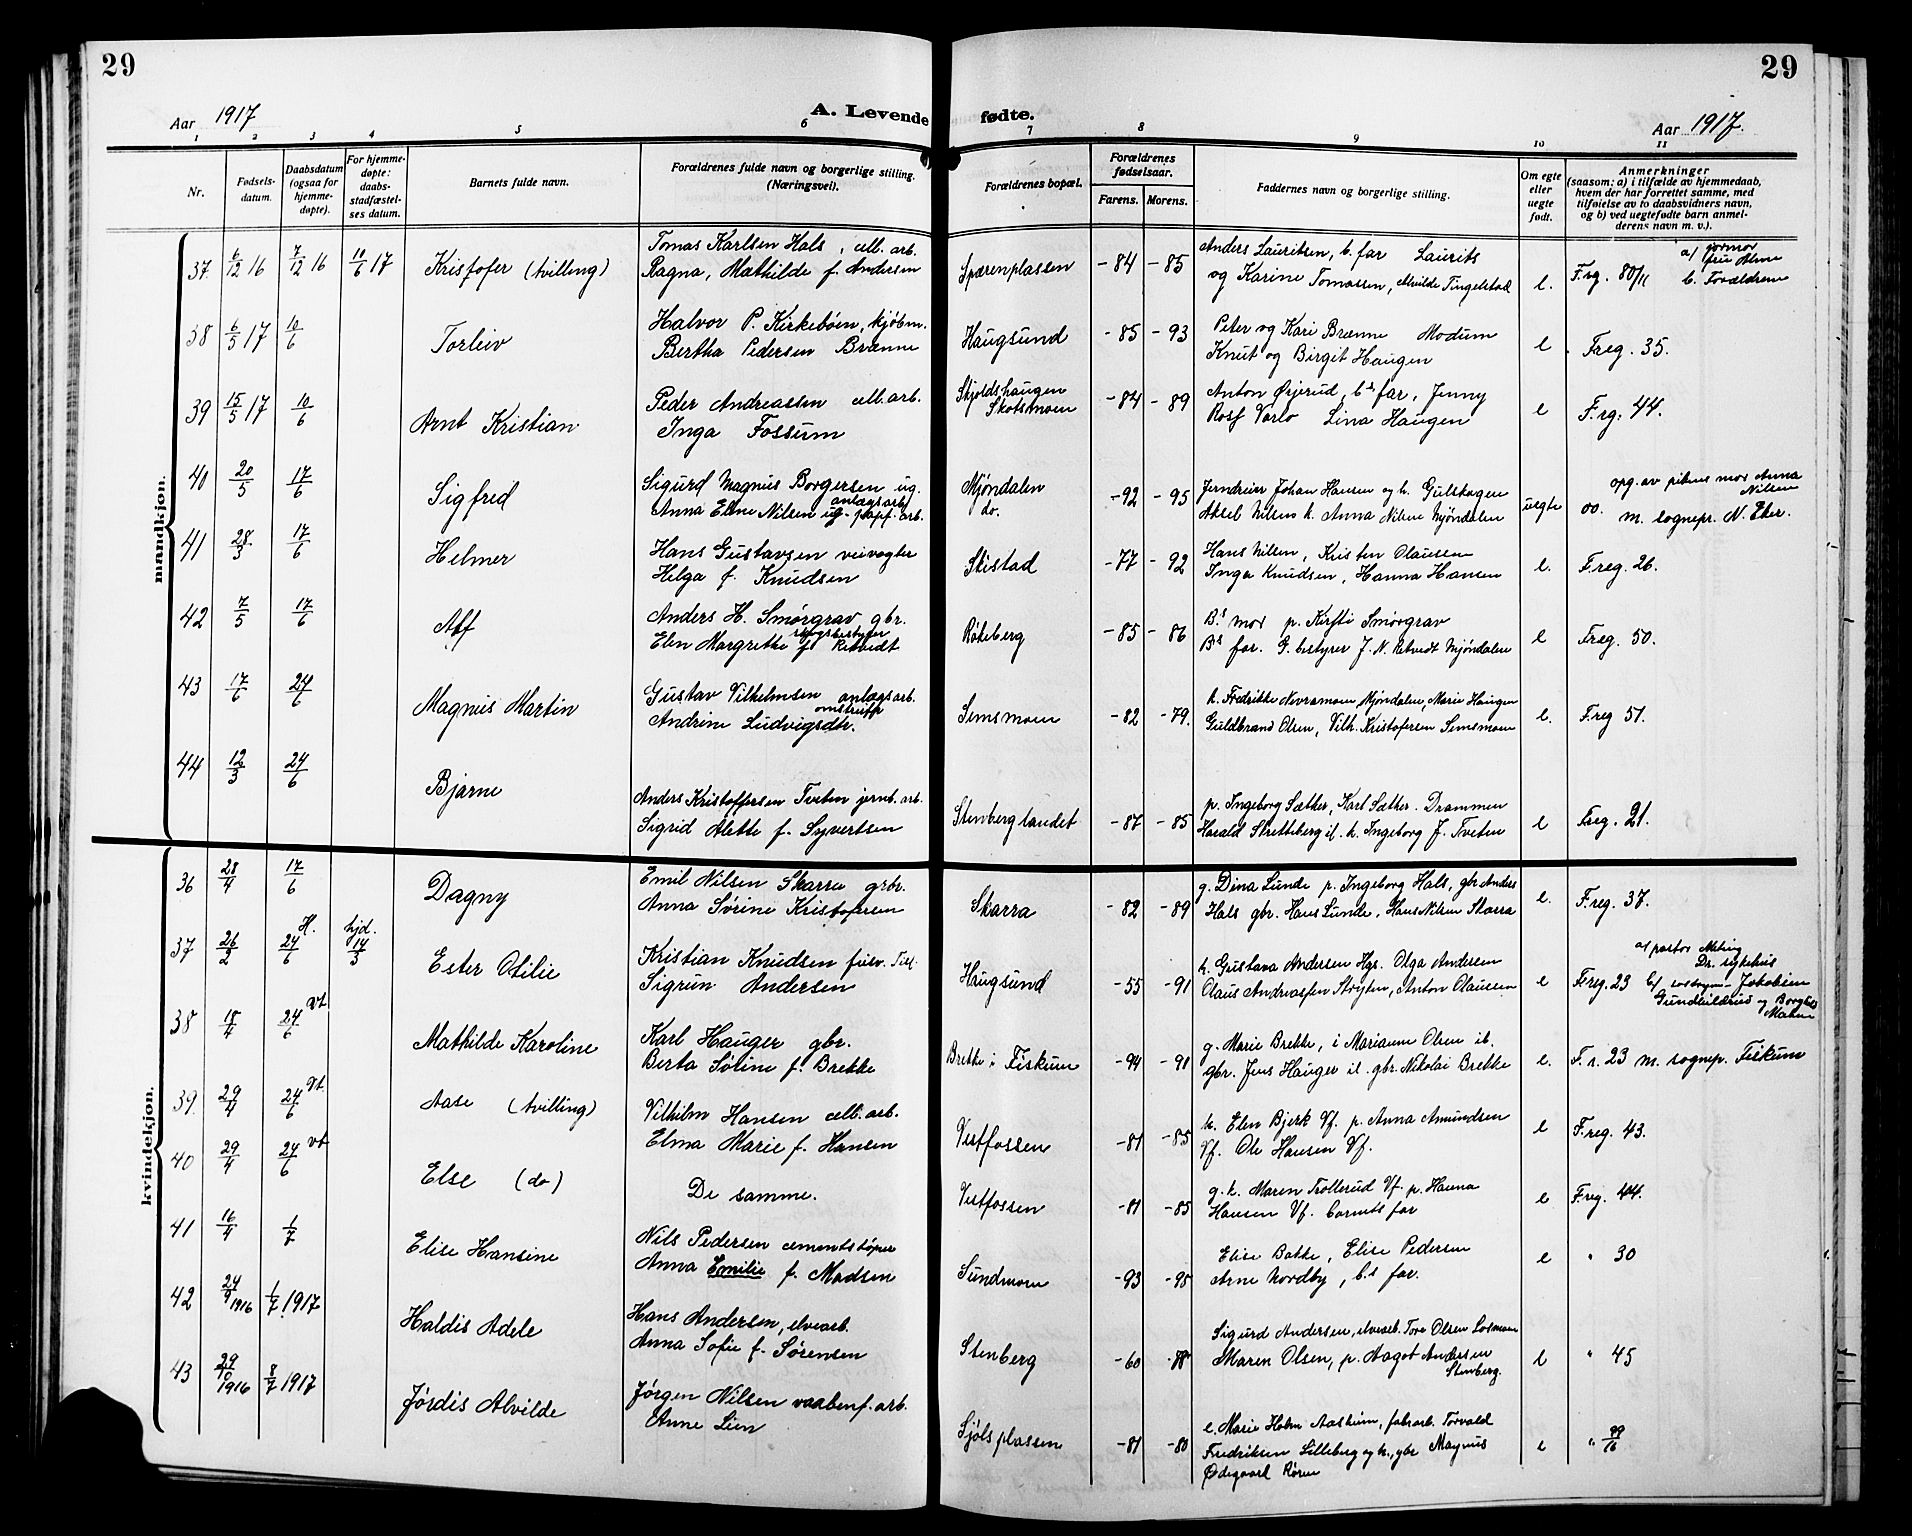 29
29
Aar 1917
A. Levende fødte.
Aar 1917.
1 2 3 4 5 6 7 8 9 10 11
Nr.
Fødsels-
datum.
Daabsdatum
(ogsaa for
hjemme-
døpte).
For hjemme-
døpte:
daabs-
stadfæstel-
ses datum.
Barnets fulde navn.
Forældrenes fulde navn og borgerlige stilling.
(Næringsvei).
Forældrenes bopæl.
Forældrenes
fødselsaar.
Farens. Morens.
Faddernes navn og borgerlige stilling.
Om egte
eller
uegte
født.
Anmerkninger
(saasom: a) i tilfælde av hjemmedaab,
hvem der har forrettet samme, med
tilføielse av to daabsvidners navn,
og b) ved uegtefødte barn anmel-
derens navn m. v.).
mandkjøn.
37 6/12 16 7/12 16 10/6 17 Kristofer (tvilling)
Tomas Karlsen Hals, cell. arb.
Ragna, Mathilde f. Andersen
Spærenplassen -84 -85
Anders Lauritsen, b. far Laurits
og Karine Tomassen, Alvilde Tingelstad
l. F.rg. 80/11
a/ jormor
fru Alme
b. Forældrene
38 6/5 17 10/6 Torleiv
Halvor P. Kirkebøen, kjøbm.
Bertha Pedersen Brænne
Haugsund -85 -93
Peter og Kari Brænne Modum
Knut og Birgit Haugen
l Freg. 35.
39 15/5 17 10/6 Arnt Kristian
Peder Andreassen cell. arb.
Inga Fossum
Stjoldshaugen
Skotsmoen -84 -89
Anton Ørjerud, bs far, Jenny
Rosf Varlo Lina Haugen
l F.rg. 44.
40 20/5 17/6 Sigfred
Sigurd Magnus Borgersen ug.
anlægsarb
Anna Eline Nilsen ug. papf. arb.
Mjøndalen
do. -92 -95
Jerndreier Johan Hansen og h. Gulskogen
Aksel Nilsen h. Anna Nilsen Mjøndalen
uegte oo.
opg. av pikens mor Anna
Nilsen
m. sognepr. N. Eker.
41 28/3 17/6 Helmer
Hans Gustavsen veivogter
Helga f. Knudsen
Skistad -77 -92
Hans Nilsen, Kristen Olausen
Inga Knudsen, Hanna Hansen
l. F.reg. 26.
42 7/5 17/6 Alf
Anders H. Smørgrav gbr.
skogsbestyrer
Elen Margrethe f. Retvedt
Røkeberg -85 -86
Bs mor p. Kirsti Smørgrav
Bs far. G. bestyrer J. N. Retvedt Mjøndalen
l Freg. 50.
43 17/6 24/6 Magnus Martin
Gustav Vilhelmsen anlægsarb.
Andrine Ludvigsdtr.
Semsmoen -82 -79.
h. Fredrikke Novramoen Mjøndalen, Marie Haugen
Guldbrand Olsen, Vilh. Kristofersen Semsmoen
l. F.reg 51.
44 12/3 24/6 Bjarne
Anders Kristoffersen Tveten jernb. arb.
Sigrid Alette f. Syvertsen
Stenberglandet -87 -85
p. Ingeborg Sæther, Karl Sæther. Drammen
Harald Stretteberg il. h. Ingeborg J. Tveten
l Freg. 21.
kvindekjøn.
36 28/4 17/6 Dagny
Emil Nilsen Skarra grbr.
Anna Sørine Kristofersen
Skarra -82 -89
g. Dina Lunde p. Ingeborg Hals, gbr Anders
Hals gbr. Hans Lunde, Hans Nilsen Skarra
l. F.reg. 37.
37 26/2 H. 24/6 hjd. 14/3 Ester Otilie
Kristian Knudsen
Sigrun Andersen
Haugsund -55 -91
h. Gustava Andersen Hgs. Olga Andersen
Olaus Andreassen Stryken, Anton Olausen
l F.reg. 23
a/ pastor
Dr. sykehus
b/ Jakobine
Gundhildrud og Borghild
38 18/4 24/6 Mathilde Karoline
Karl Hauger gbr.
Berta Sørine f. Brekke
Brekke i Fiskum -94 -91
g. Marie Brekke, i Marianne Olsen il.
gbr. Jens Hauger il. gbr. Nikolai Brekke
l. F. r. 23 m. sognep. Fiskum
39. 29/4 24/6 Aase (tvilling)
Vilhelm Hansen cell. arb.
Elma Marie f. Hansen
Vestfossen -81 -85
h. Elen Bjerk Vf. p. Anna Amundsen
Vf. Ole Hansen Vf.
l F.reg. 43.
40 29/4 24/6 vt Else (do)
De samme.
Vestfossen -81 -85
g. h. Maren Trollerud Vf. p. Hanna
Hansen Vf. barnets far
l F.reg. 44.
41 16/4 1/7 Elise Hansine
Nils Pedersen cementstøper
Anna Emilie f. Madsen
Sundmoen -93 -95
Elise Bakke, Elise Pedersen
Arne Nordby, b.s far.
l " 30
42 24/9 1916 1/7 1917 Haldis Adele
Hans Andersen, elvearb.
Anna Sofie f. Sørensen
Stenberg -60 -88
Sigurd Andersen, elvearb. Tore Olsen Losmoen
Maren Olsen, p. Aagot Andersen
Stenberg.
l " 45
43 29/10 1916 8/7 1917 Jørdis Alvilde
Jørgen Nilsen vaabenf. arb.
Anne Lien
Sjølsplassen -81 -80
e. Marie Holm Aaskum, fabrarb. Torvald
Fredriksen Lilleberg og h., gbr Magnus
Ødegaard Røren
l " 99/16